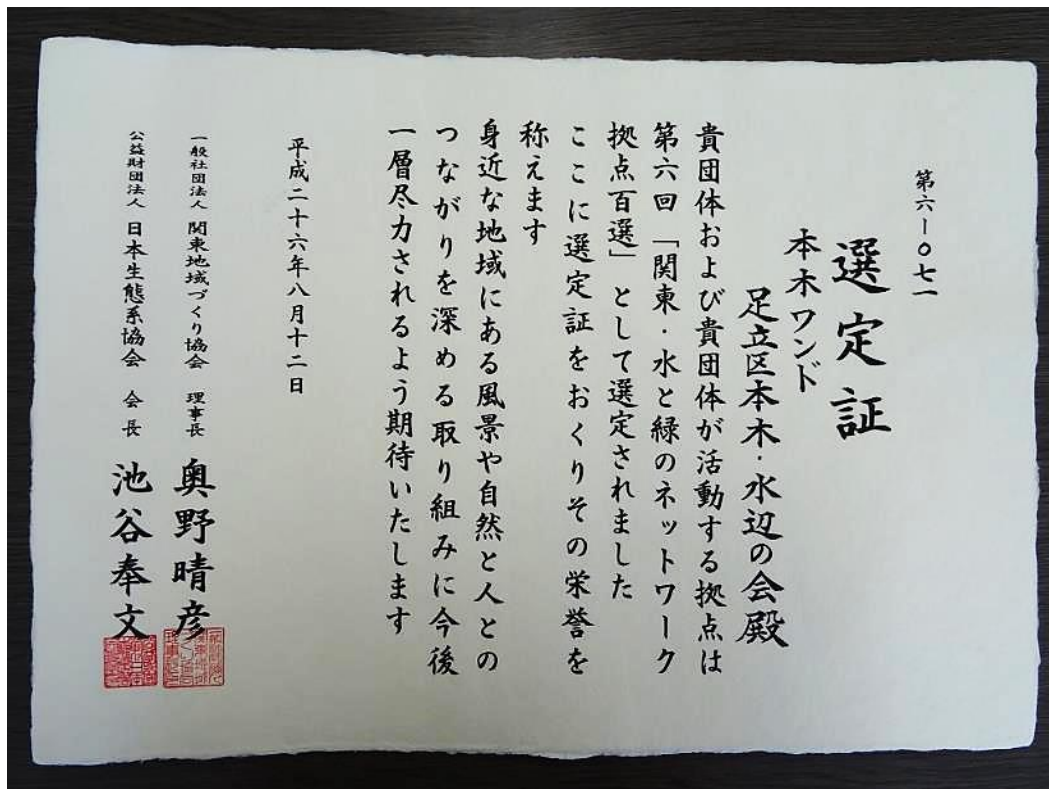 第六-〇七一
選定証
本木ワンド
足立区本木・水辺の会殿
貴団体および貴団体が活動する拠点は
第六回「関東・水と緑のネットワーク
拠点百選」として選定されました
ここに選定証をおくりその栄誉を
称えます
身近な地域にある風景や自然と人との
つながりを深める取り組みに今後
一層尽力されるよう期待いたします
平成二十六年八月十二日
一般社団法人 関東地域づくり協会 理事長 奥野晴彦
公益財団法人 日本生態系協会 会長 池谷奉文